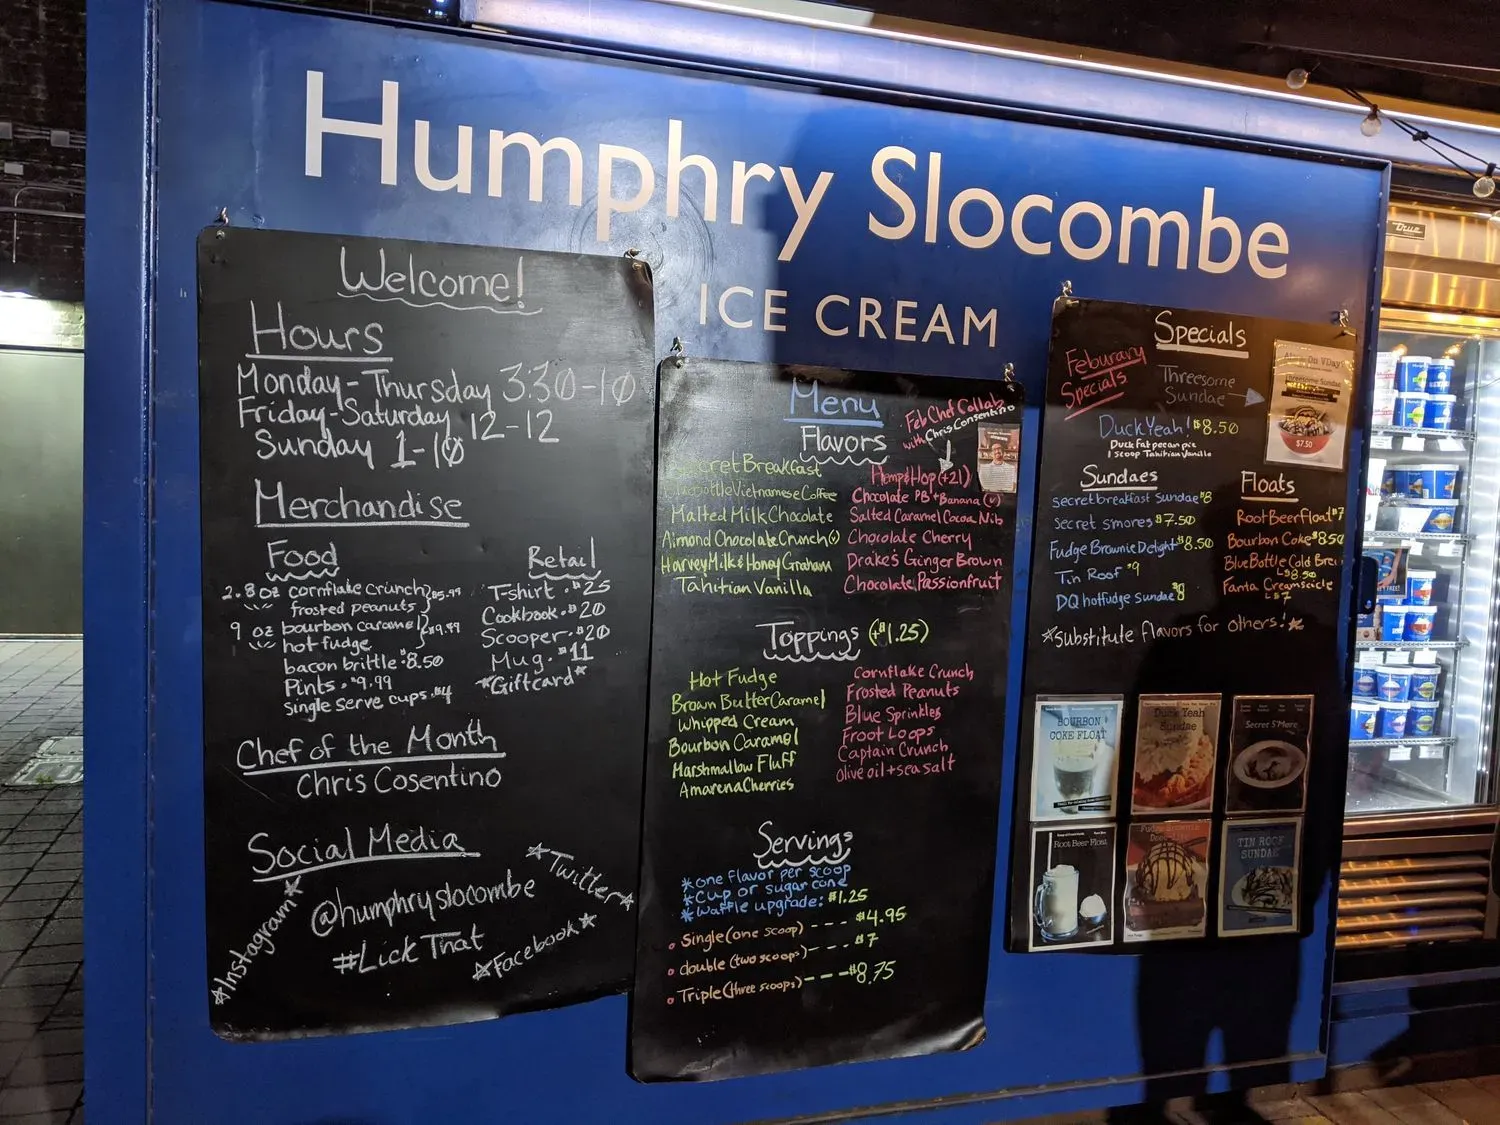 Humphry Slocombe
ICE CREAM
Welcome!
Hours
Monday-Thursday 3:30-10
Friday-Saturday 12-12
Sunday 1-10
Merchandise
Food
2.8 oz cornflake crunch $5.99
frosted peanuts
9 oz bourbon caramel $9.99
hot fudge
bacon brittle $8.50
Pints $9.99
Single serve cups $4
Retail
T-shirt $25
Cookbook $20
Scooper $20
Mug $11
*Giftcard*
Chef of the Month
Chris Cosentino
Social Media
*Instagram*
*Twitter*
@humphryslocombe
#LickThat
*Facebook*
Menu
Flavors
Feb Chef Collab
with Chris Cosentino
Secret Breakfast
Blue Bottle Vietnamese Coffee
Malted Milk Chocolate
Almond Chocolate Crunch (v)
Harvey Milk & Honey Graham
Tahitian Vanilla
Hemp & Hop (+21)
Chocolate PB + Banana (v)
Salted Caramel Cocoa Nib
Chocolate Cherry
Drake's Ginger Brown
Chocolate Passionfruit
Toppings (+$1.25)
Hot Fudge
Brown Butter Caramel
Whipped Cream
Bourbon Caramel
Marshmallow Fluff
Amarena Cherries
Cornflake Crunch
Frosted Peanuts
Blue Sprinkles
Froot Loops
Captain Crunch
Olive oil + sea salt
Servings
*one flavor per scoop
*Cup or sugar cone
*waffle upgrade: $1.25
Single (one scoop) --- $4.95
double (two scoops) --- $7
Triple (three scoops) --- $8.75
Specials
Feburary
Specials
Threesome
Sundae
Threesome Sundae
$7.50
Duck Yeah! $8.50
Duck fat pecan pie
1 scoop Tahitian Vanilla
Sundaes
secret breakfast Sundae $8
Secret s'mores $7.50
Fudge Brownie Delight $8.50
Tin Roof $9
DQ hotfudge sundae $8
Floats
Root Beer Float $7
Bourbon Coke $8.50
Blue Bottle Cold Bre
$8.50
Fanta Creamsicle
$7
*Substitute flavors for others!*
BOURBON
COKE FLOAT
Duck Yeah
Sundae
Secret S'More
Root Beer Float
Fudge Brownie
TIN ROOF
SUNDAE
True